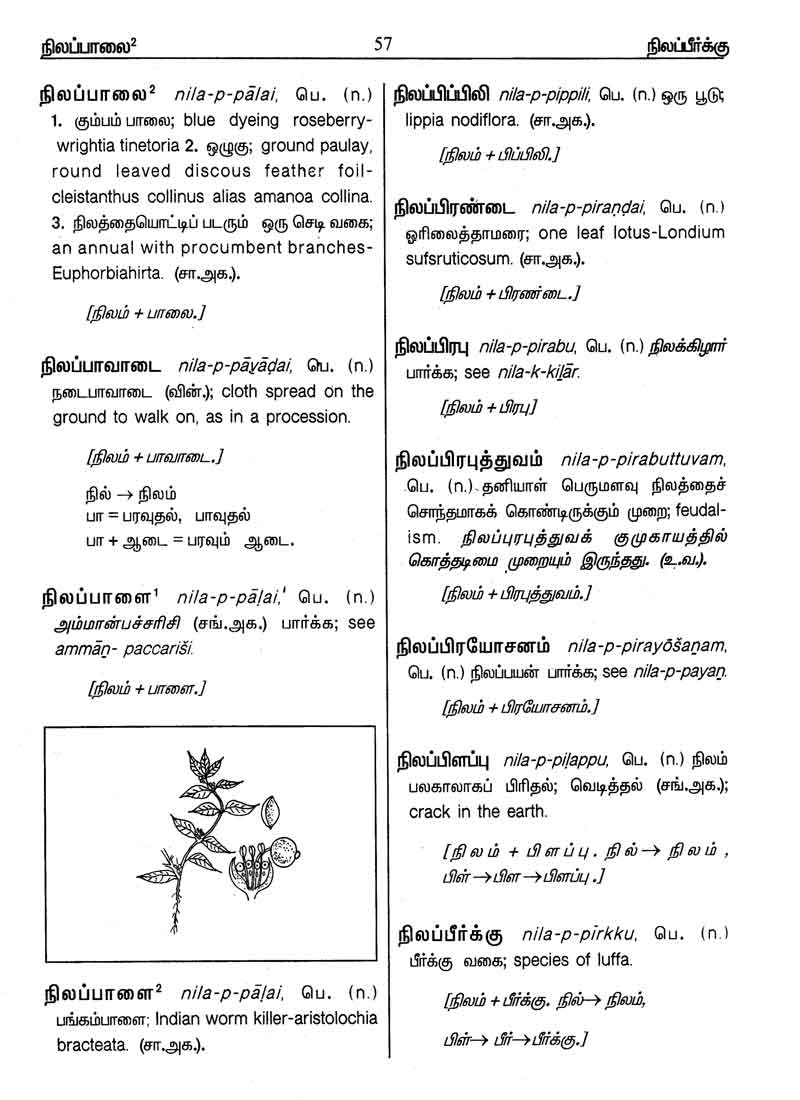 நிலப்பாலை² 57 நிலப்பீர்க்கு
நிலப்பாலை² nila-p-pālai, பெ. (n.)
1. கும்பம் பாலை; blue dyeing roseberry-
wrightia tinetoria 2. ஒழுகு; ground paulay,
round leaved discous feather foil-
cleistanthus collinus alias amanoa collina.
3. நிலத்தையொட்டிப் படரும் ஒரு செடி வகை;
an annual with procumbent branches-
Euphorbiahirta. (சா.அக.).
[நிலம் + பாலை.]
நிலப்பாவாடை nila-p-pāvāḍai, பெ. (n.)
நடைபாவாடை (வின்.); cloth spread on the
ground to walk on, as in a procession.
[நிலம் + பாவாடை.]
நில் → நிலம்
பா = பரவுதல், பாவுதல்
பா + ஆடை = பரவும் ஆடை.
நிலப்பாளை¹ nila-p-pāḷai, பெ. (n.)
அம்மான்பச்சரிசி (சங்.அக.) பார்க்க; see
ammāṉ- paccariši.
[நிலம் + பாளை.]
நிலப்பாளை² nila-p-pāḷai, பெ. (n.)
பங்கம்பாளை; Indian worm killer-aristolochia
bracteata. (சா.அக.).
நிலப்பிப்பிலி nila-p-pippili, பெ. (n.) ஒரு பூடு;
lippia nodiflora. (சா.அக.).
[நிலம் + பிப்பிலி.]
நிலப்பிரண்டை nila-p-piraṇḍai, பெ. (n.)
ஓரிலைத்தாமரை; one leaf lotus-Londium
sufsruticosum. (சா.அக.).
[நிலம் + பிரண்டை.]
நிலப்பிரபு nila-p-pirabu, பெ. (n.) நிலக்கிழார்
பார்க்க; see nila-k-kiḻār.
[நிலம் + பிரபு]
நிலப்பிரபுத்துவம் nila-p-pirabuttuvam,
பெ. (n.) தனியாள் பெருமளவு நிலத்தைச்
சொந்தமாகக் கொண்டிருக்கும் முறை; feudal-
ism. நிலப்புரபுத்துவக் குமுகாயத்தில்
கொத்தடிமை முறையும் இருந்தது. (உ.வ.).
[நிலம் + பிரபுத்துவம்.]
நிலப்பிரயோசனம் nila-p-pirayōšaṉam,
பெ. (n.) நிலப்பயன் பார்க்க; see nila-p-payaṉ.
[நிலம் + பிரயோசனம்.]
நிலப்பிளப்பு nila-p-piḷappu, பெ. (n.) நிலம்
பலகாலாகப் பிரிதல்; வெடித்தல் (சங்.அக.);
crack in the earth.
[நிலம் + பிளப்பு. நில்→ நிலம்,
பிள்→பிள→பிளப்பு.]
நிலப்பீர்க்கு nila-p-pīrkku, பெ. (n.)
பீர்க்கு வகை; species of luffa.
[நிலம் + பீர்க்கு. நில்→ நிலம்,
பிள்→ பீர்→பீர்க்கு.]